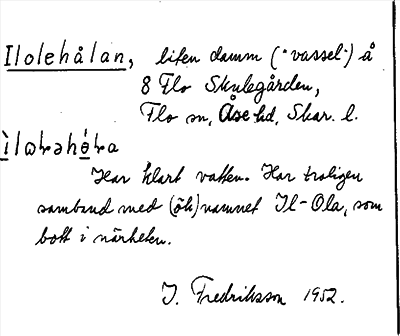 Ilolehålan, liten damm ("vassel") å
8 Flo Skulegården,
Flo sn, Åse hd, Skar. l.
Har klart vatten. Har troligen
samband med (ök)namnet Il-Ola, som
bott i närheten.
J. Fredriksson 1952.